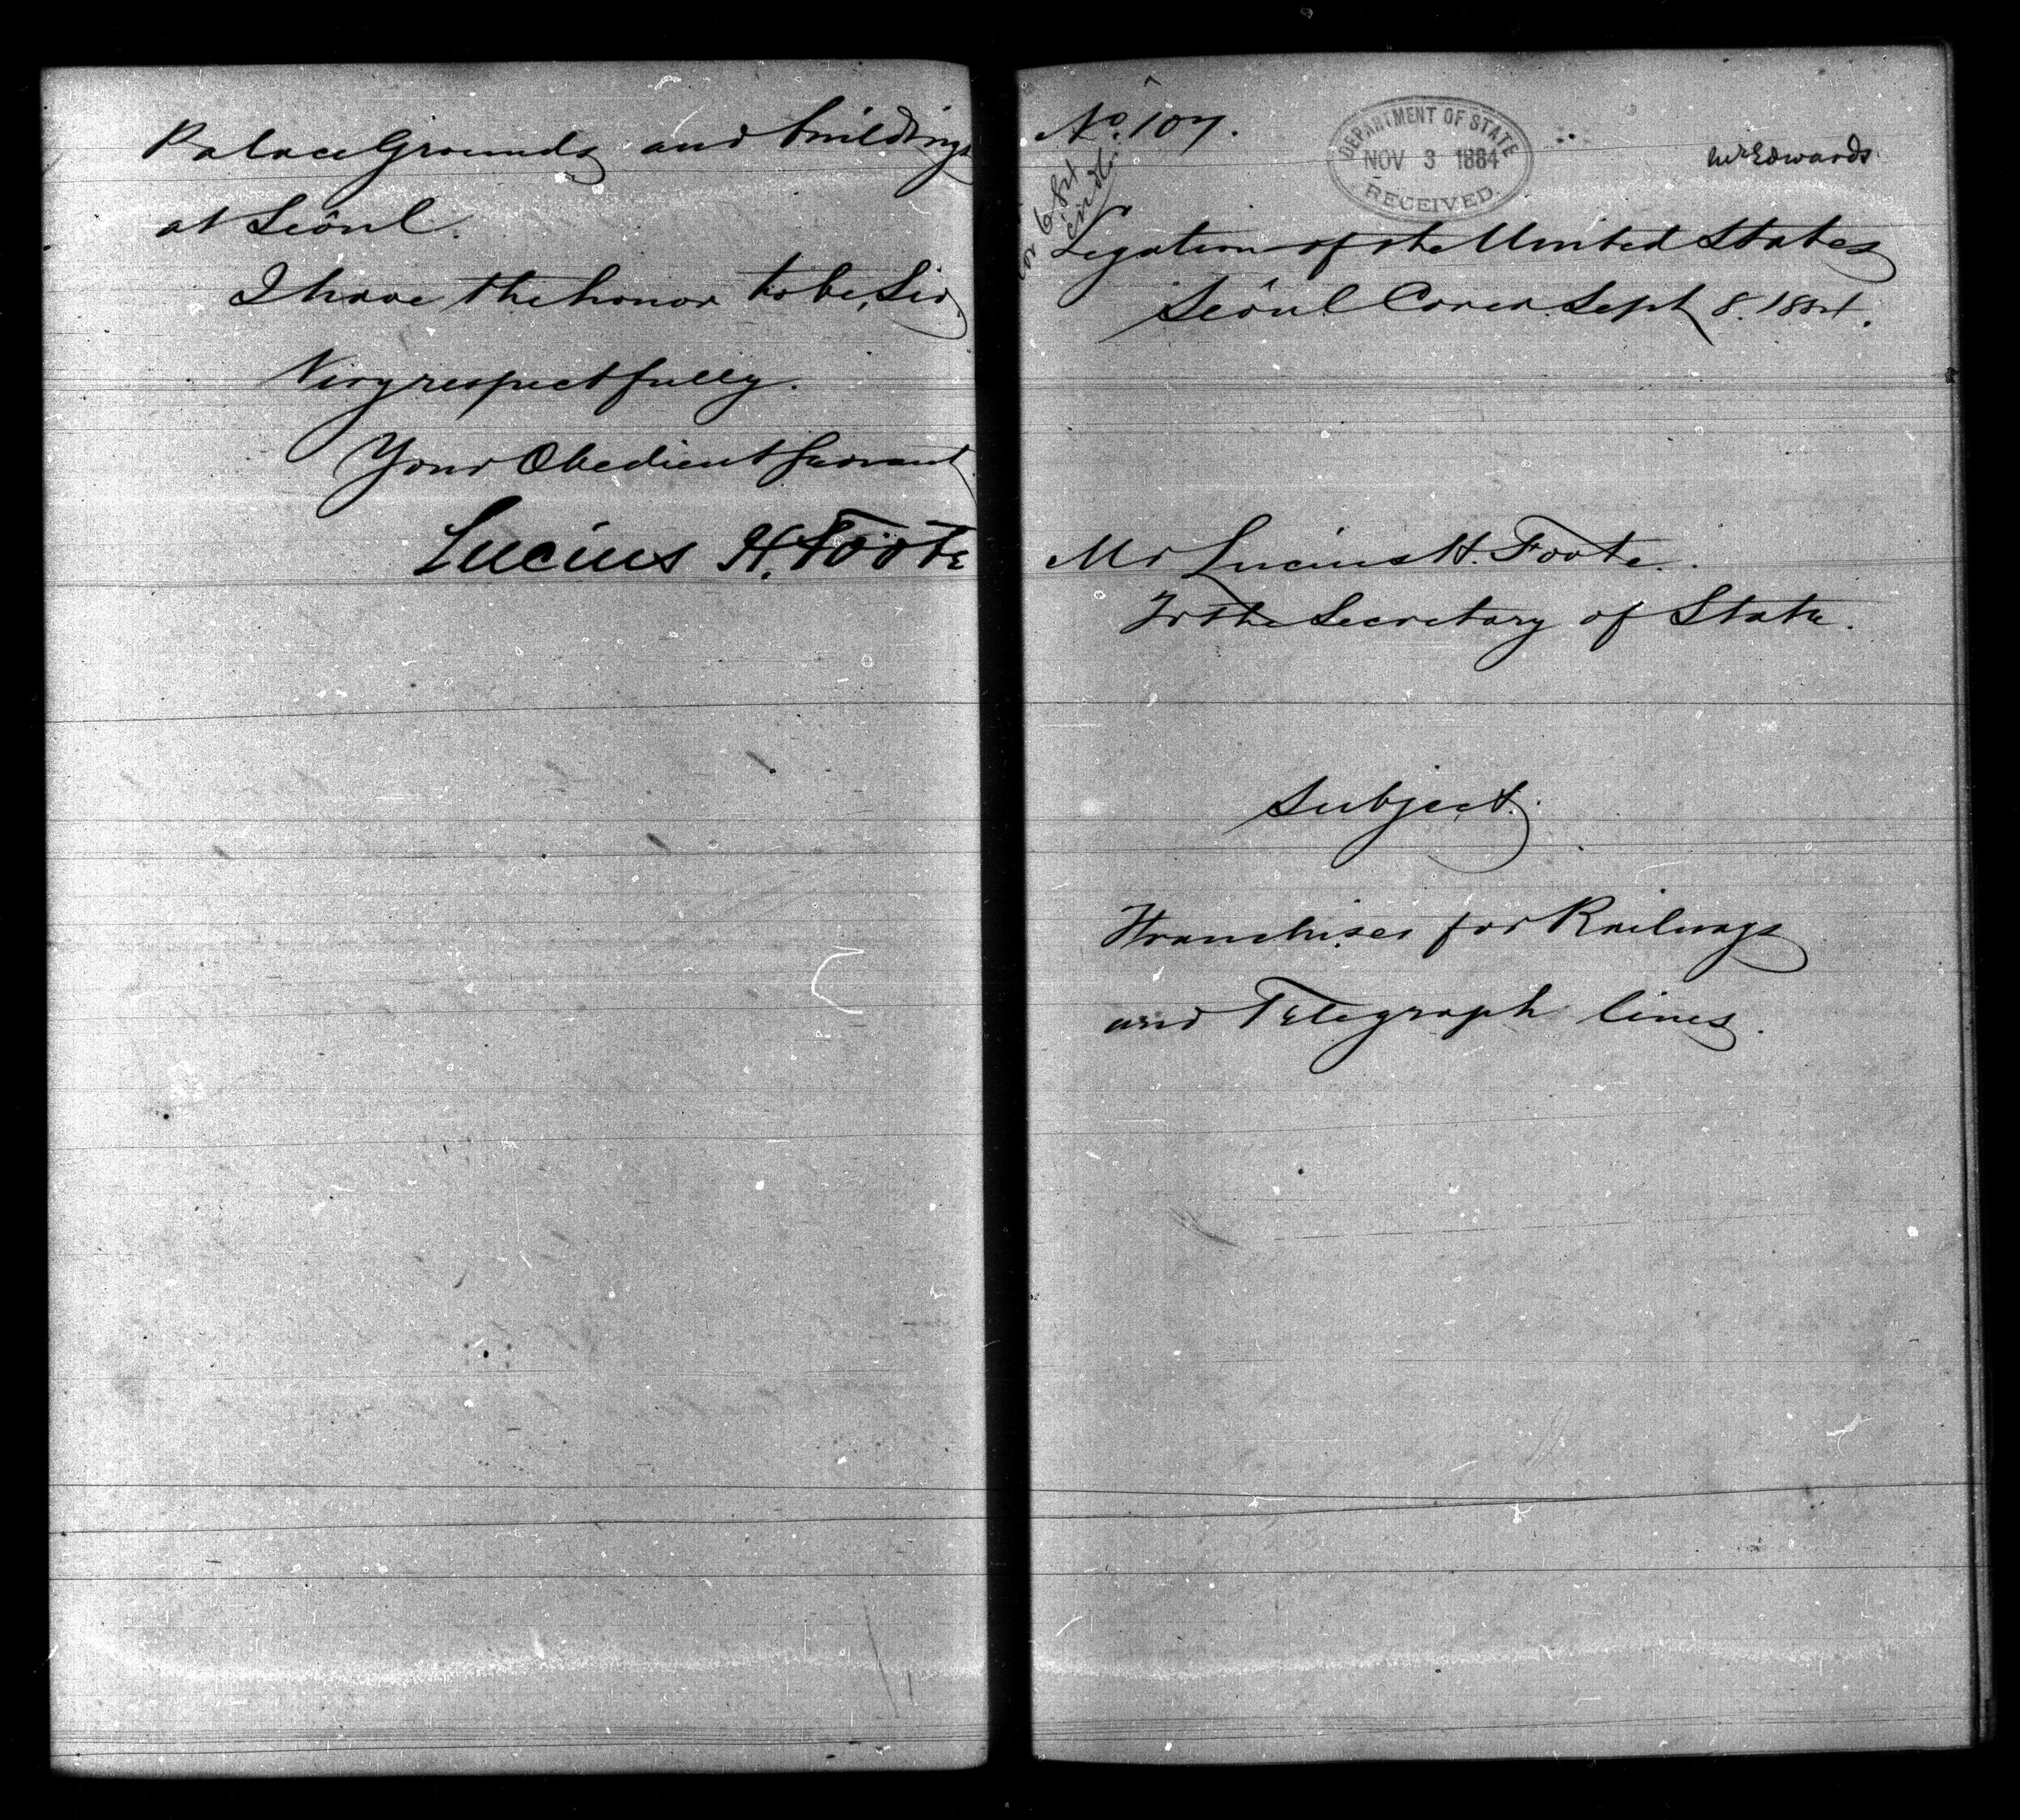 Palace Grounds and buildings
at Seôul.
I have the honor to be, Sir,
Very respectfully.
Your Obedient Servant
Lucius H. Foote
No. 107.
DEPARTMENT OF STATE
NOV 3 1884
RECEIVED.
Mr Edwards
Legation of the United States
Seôul Corea. Sept 8. 1884.
Mr Lucius H. Foote.
To the Secretary of State.
Subject.
Franchises for Railways
and Telegraph lines.